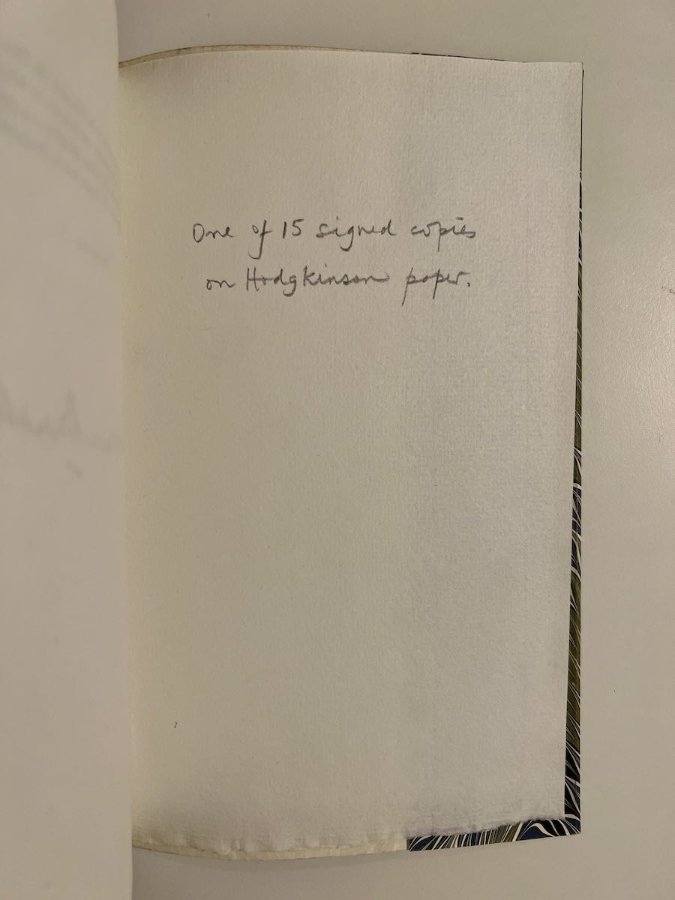 One of 15 signed copies
on Hodgkinson paper.